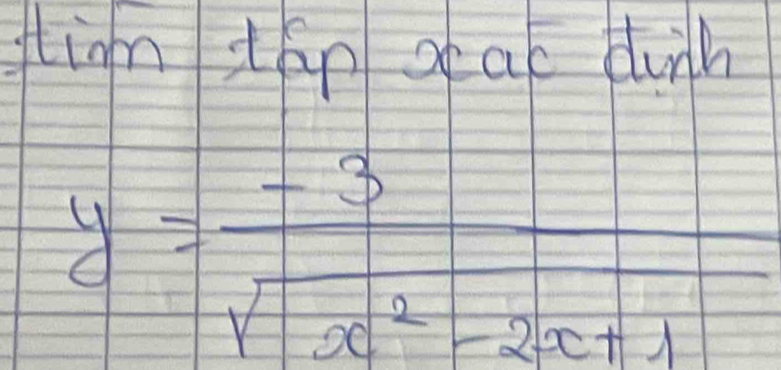 tìm tập xác định
y = \frac{-3}{\sqrt{x^2 - 2x + 1}}